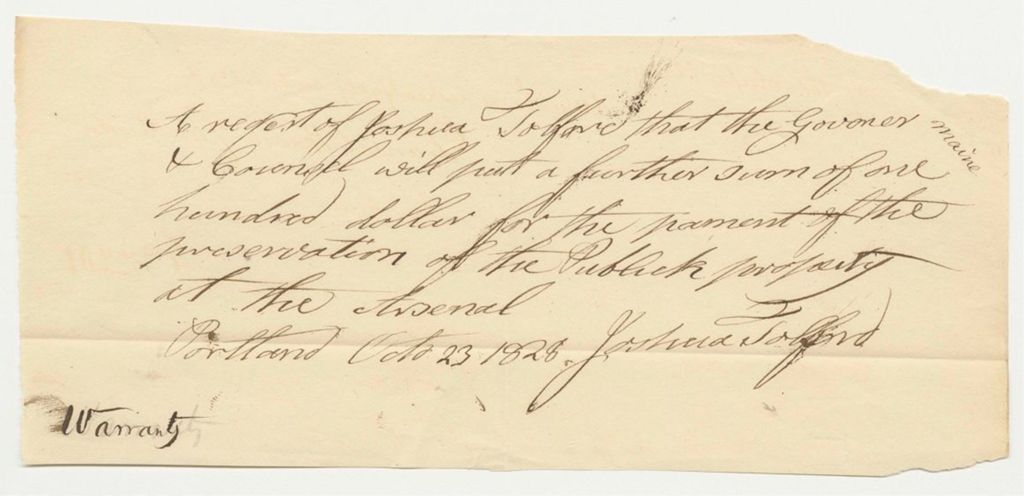 A regest of Joshua Tolford that the Govoner
maine
& Counsell will put a further sum of one
hundred dollar for the pament of the
preservation of the Publick property
at the Arsenal
Portland Octo 23 1828. Joshua Tolford
Warrants